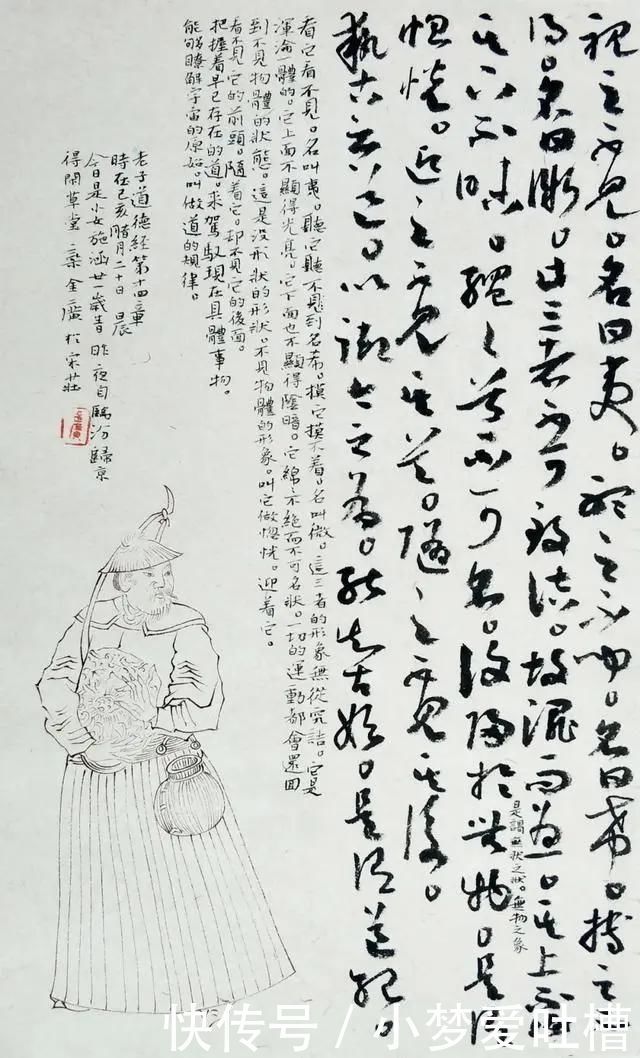 視之不見。名曰夷。聽之不聞。名曰希。搏之不
得。名曰微。此三者不可致詰。故混而為一。其上不皦
其下不昧。繩繩兮不可名。復歸於無物。是謂
是謂無狀之狀。無物之象
惚恍。迎之不見其首。隨之不見其後。
執古之道。以御今之有。能知古始。是謂道紀。
看它看不見。名叫夷。聽它聽不見到名希。摸它摸不着。名叫微。這三者的形象無從究詰。它是
渾淪一體的。它上面不顯得光亮。它下面也不顯得陰暗。它綿亦絕而不可名狀。一切的運動都會還回
到不見物體的狀態。這是没形狀的形狀。不見物體的形象。叫它做惚恍。迎着它。
看不見它的前頭。隨着它。却不見它的後面。
把握着早已存在的道。來駕馭現在具體事物。
能够瞭解宇宙的原始。叫做道的規律。
老子道德經第十四章
時在己亥腊月二十日 日辰
今日是小女施涵廿一歲 昨夜自 歸京
得閑草堂 金廣 於宋莊
快传号 / 小梦爱吐槽